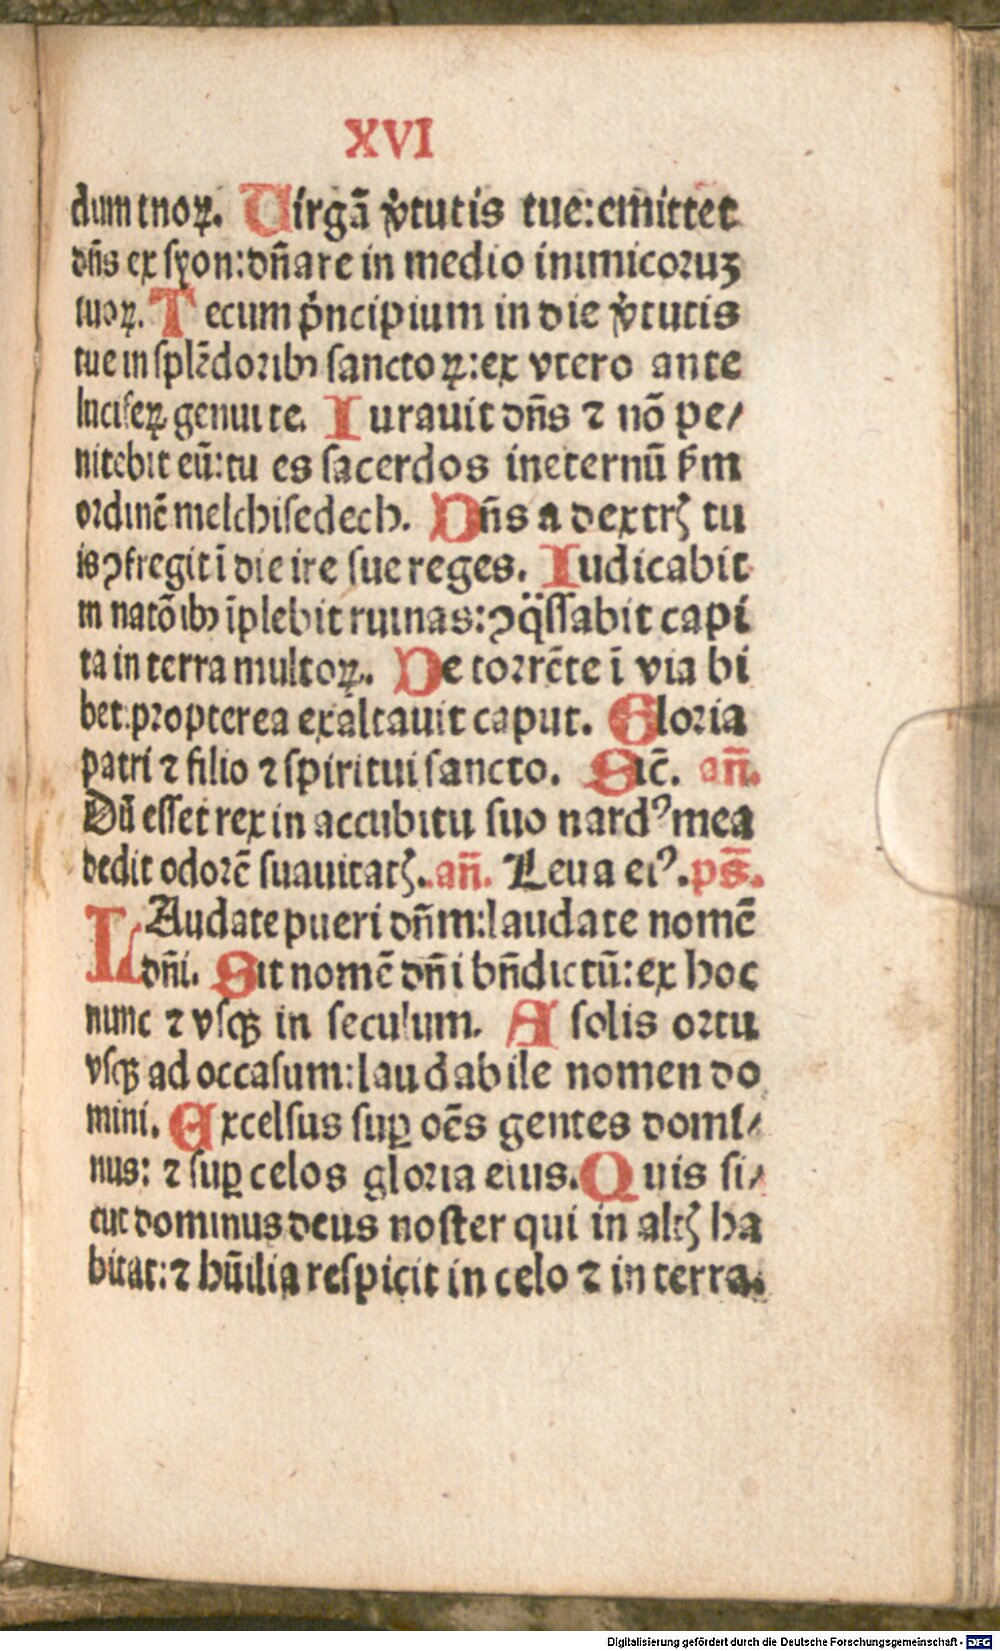 XVI
dum tuoꝝ. Uirgā v̾tutis tue: emittet
dn̄s ex syon: dn̄are in medio inimicoruꝫ
tuoꝝ. Tecum p̄ncipium in die v̾tutis
tue in splēdoribꝰ sanctoꝝ: ex vtero ante
luciferꝝ genui te. Iurauit dn̄s ⁊ nō pe/
nitebit eū: tu es sacerdos ineternū ẜm
ordinē melchisedech. Dn̄s a dextrꝭ tu
is ꝯfregit ī die ire sue reges. Iudicabit
in natōibꝰ īplebit ruinas: ꝯq̈ssabit capi
ta in terra multoꝝ. De torrēte ī via bi
bet: propterea exaltauit caput. Gloria
patri ⁊ filio ⁊ spiritui sancto. Sic̄. an̄.
Dū esset rex in accubitu suo nardꝰ mea
dedit odorē suauitatꝭ. an̄. Leua eiꝰ. ps̄.
LAudate pueri dn̄m: laudate nomē
dn̄i. Sit nomē dn̄i bn̄dictū: ex hoc
nunc ⁊ vsqꝫ in seculum. A solis ortu
vsqꝫ ad occasum: laudabile nomen do
mini. Excelsus suꝑ oēs gentes domi/
nus: ⁊ suꝑ celos gloria eius. Quis si/
cut dominus deus noster qui in altꝭ ha
bitat: ⁊ hūilia respicit in celo ⁊ in terra.
Digitalisierung gefördert durch die Deutsche Forschungsgemeinschaft - DFG